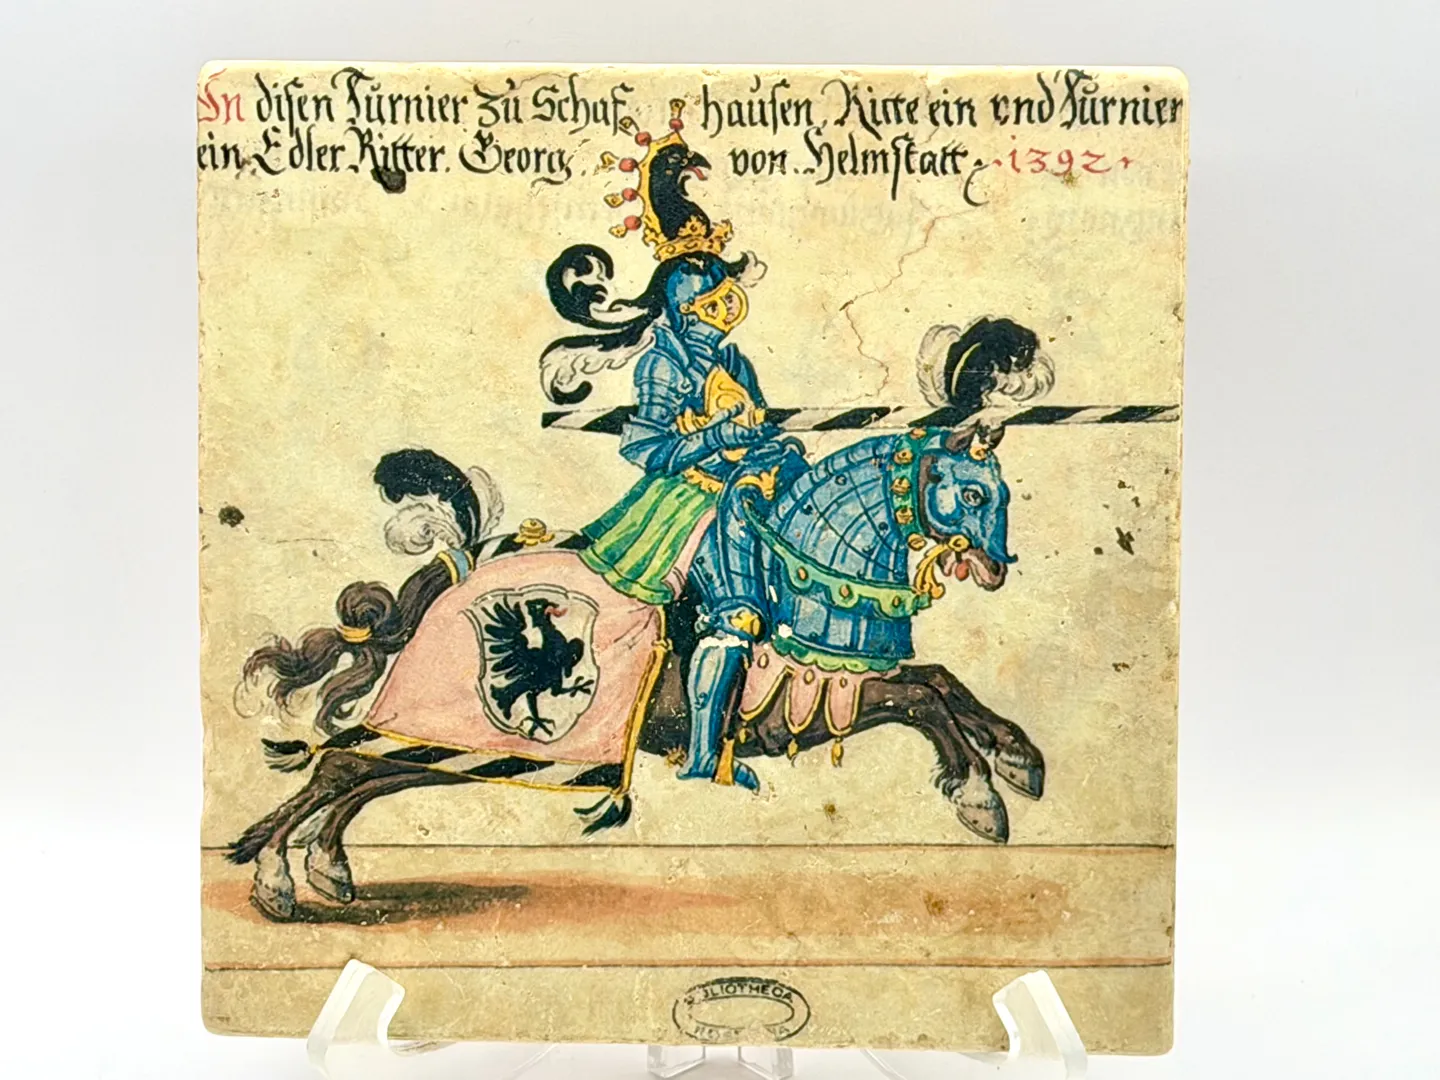 In disen Turnier zu Schaf hausen, Ritte ein vnd Turnier
ein Edler Ritter. Georg. von. Helmstatt 1392